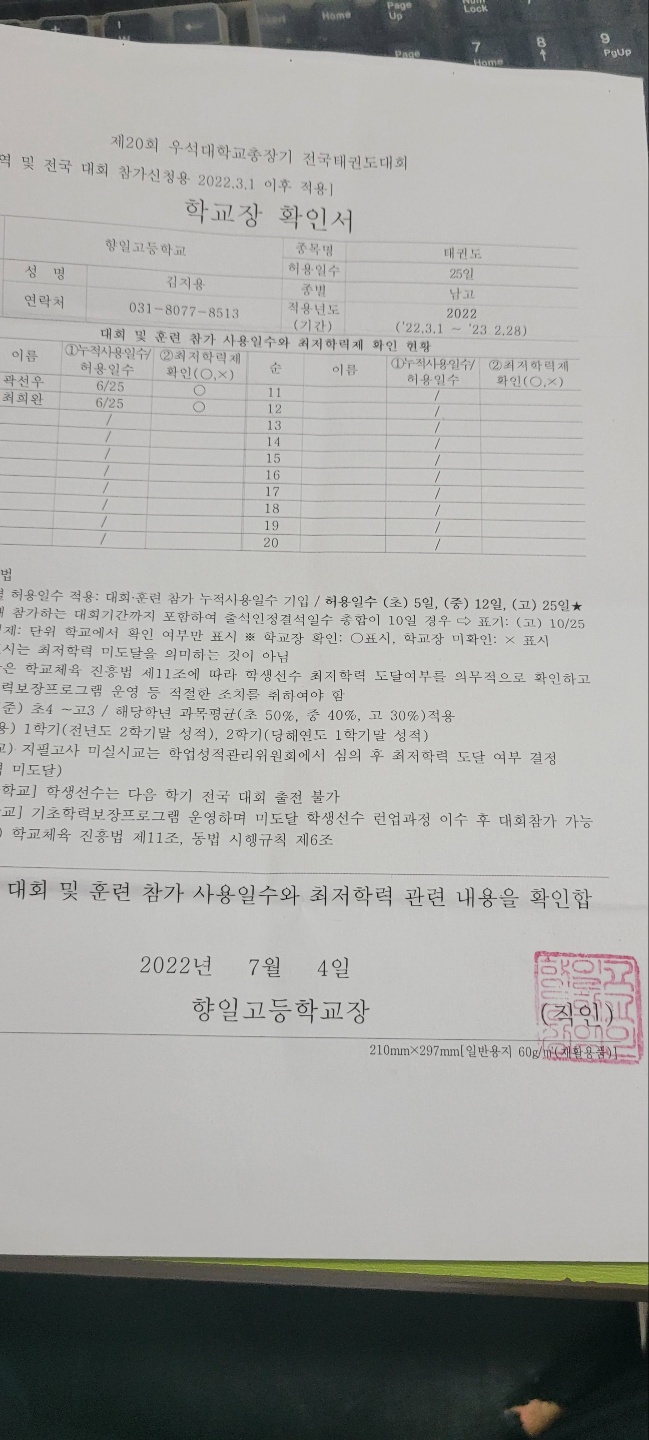 Home
Page Up
Num Lock
Page
7 Home
8
9 PgUp
제20회 우석대학교총장기 전국태권도대회
역 및 전국 대회 참가신청용 2022.3.1 이후 적용]
학교장 확인서
향일고등학교 종목명 태권도
허용일수 25일
성 명 김지용 종별 남고
연락처 031-8077-8513 적용년도 (기간) 2022 ('22.3.1 ~ '23 2.28)
대회 및 훈련 참가 사용일수와 최저학력제 확인 현황
이름 ①누적사용일수/허용일수 ②최저학력제 확인(○,×) 순 이름 ①누적사용일수/허용일수 ②최저학력제 확인(○,×)
곽선우 6/25 ○ 11 /
최희완 6/25 ○ 12 /
/ 13 /
/ 14 /
/ 15 /
/ 16 /
/ 17 /
/ 18 /
/ 19 /
/ 20 /
법
허용일수 적용: 대회·훈련 참가 누적사용일수 기입 / 허용일수 (초) 5일, (중) 12일, (고) 25일★
참가하는 대회기간까지 포함하여 출석인정결석일수 총합이 10일 경우 ⇨ 표기: (고) 10/25
제: 단위 학교에서 확인 여부만 표시 ※ 학교장 확인: ○표시, 학교장 미확인: × 표시
시는 최저학력 미도달을 의미하는 것이 아님
은 학교체육 진흥법 제11조에 따라 학생선수 최저학력 도달여부를 의무적으로 확인하고
력보장프로그램 운영 등 적절한 조치를 취하여야 함
준) 초4 ~고3 / 해당학년 과목평균(초 50%, 중 40%, 고 30%)적용
용) 1학기(전년도 2학기말 성적), 2학기(당해연도 1학기말 성적)
) 지필고사 미실시교는 학업성적관리위원회에서 심의 후 최저학력 도달 여부 결정
미도달)
학교] 학생선수는 다음 학기 전국 대회 출전 불가
교] 기초학력보장프로그램 운영하며 미도달 학생선수 런업과정 이수 후 대회참가 가능
) 학교체육 진흥법 제11조, 동법 시행규칙 제6조
대회 및 훈련 참가 사용일수와 최저학력 관련 내용을 확인합
2022년 7월 4일
향일고등학교장 (직인)
210mm×297mm[일반용지 60g/㎡(재활용품)]